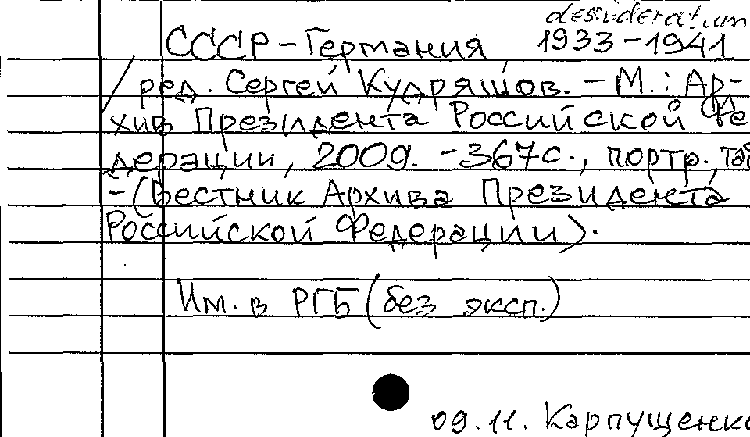 desideratum
СССР-Германия 1933-1941
/ ред. Сергей Кудряшов. - М.: Ар-
хив Президента Российской Фе
дерации, 2009. - 367с., портр., таб
- (Вестник Архива Президента
Российской Федерации).
Им. в РГБ (без эксп.)
09.11. Карпущенко